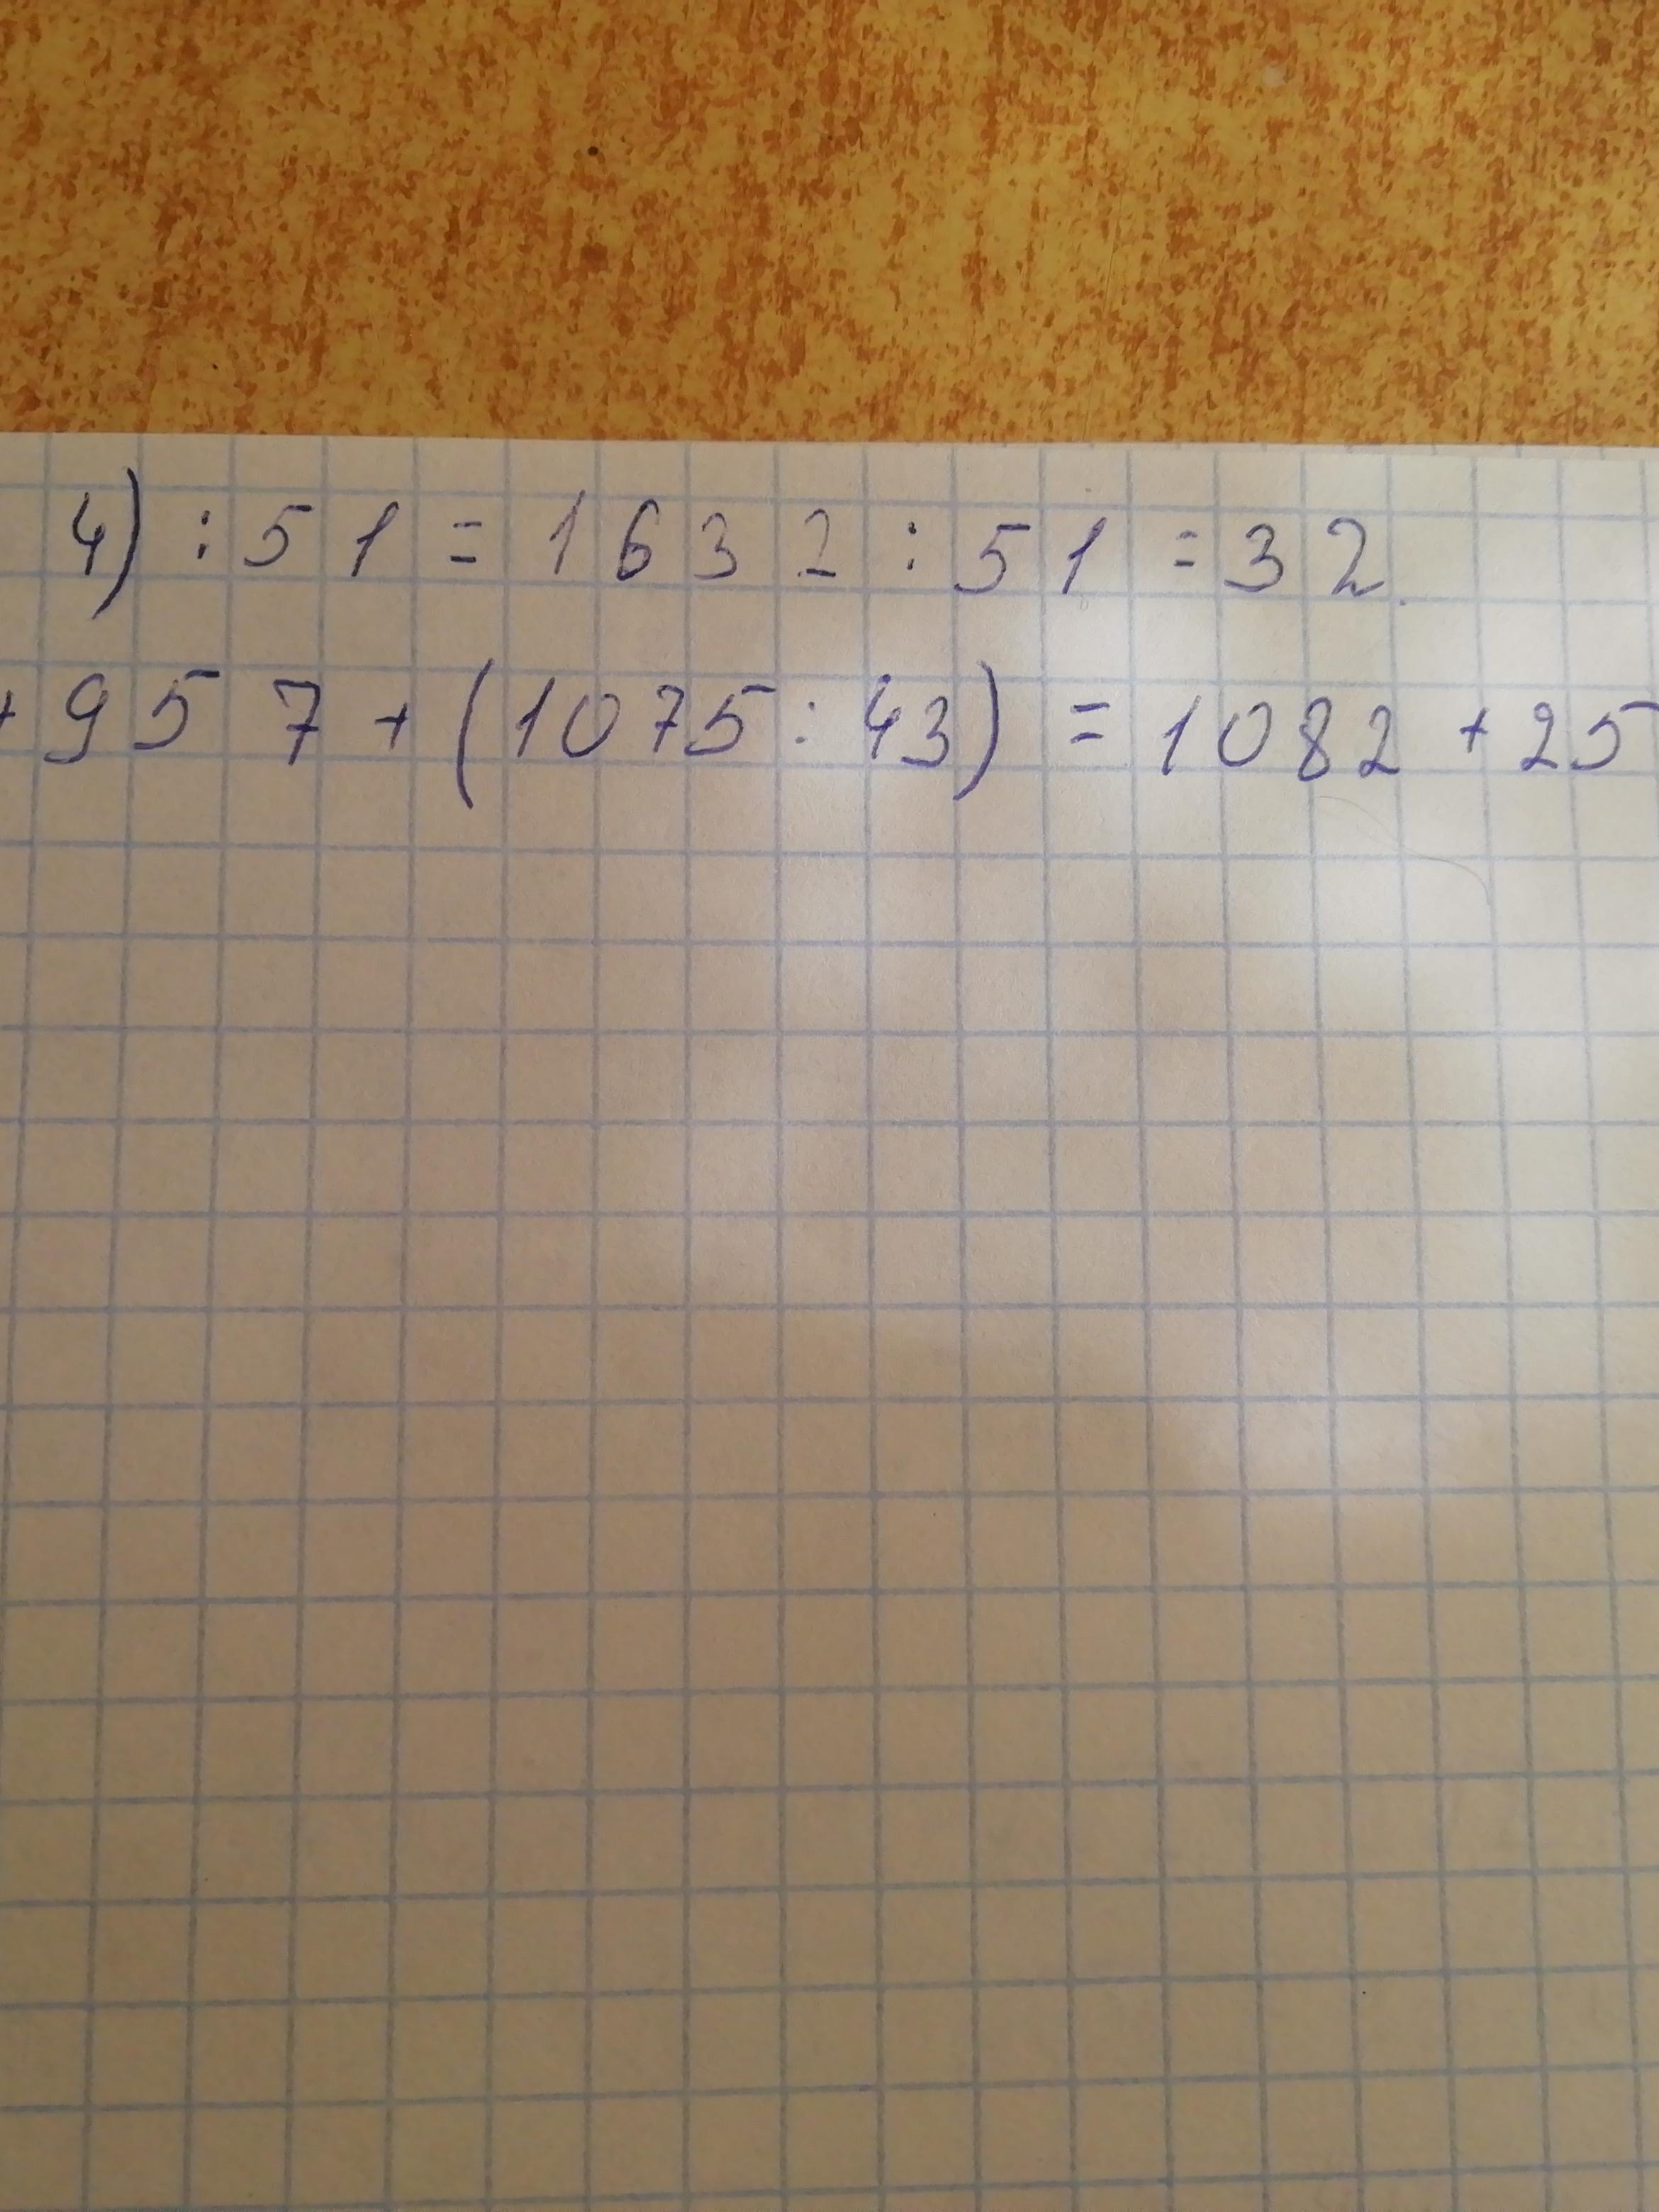 4) : 51 = 1632 : 51 = 32.
+ 957 + (1075 : 43) = 1082 + 25